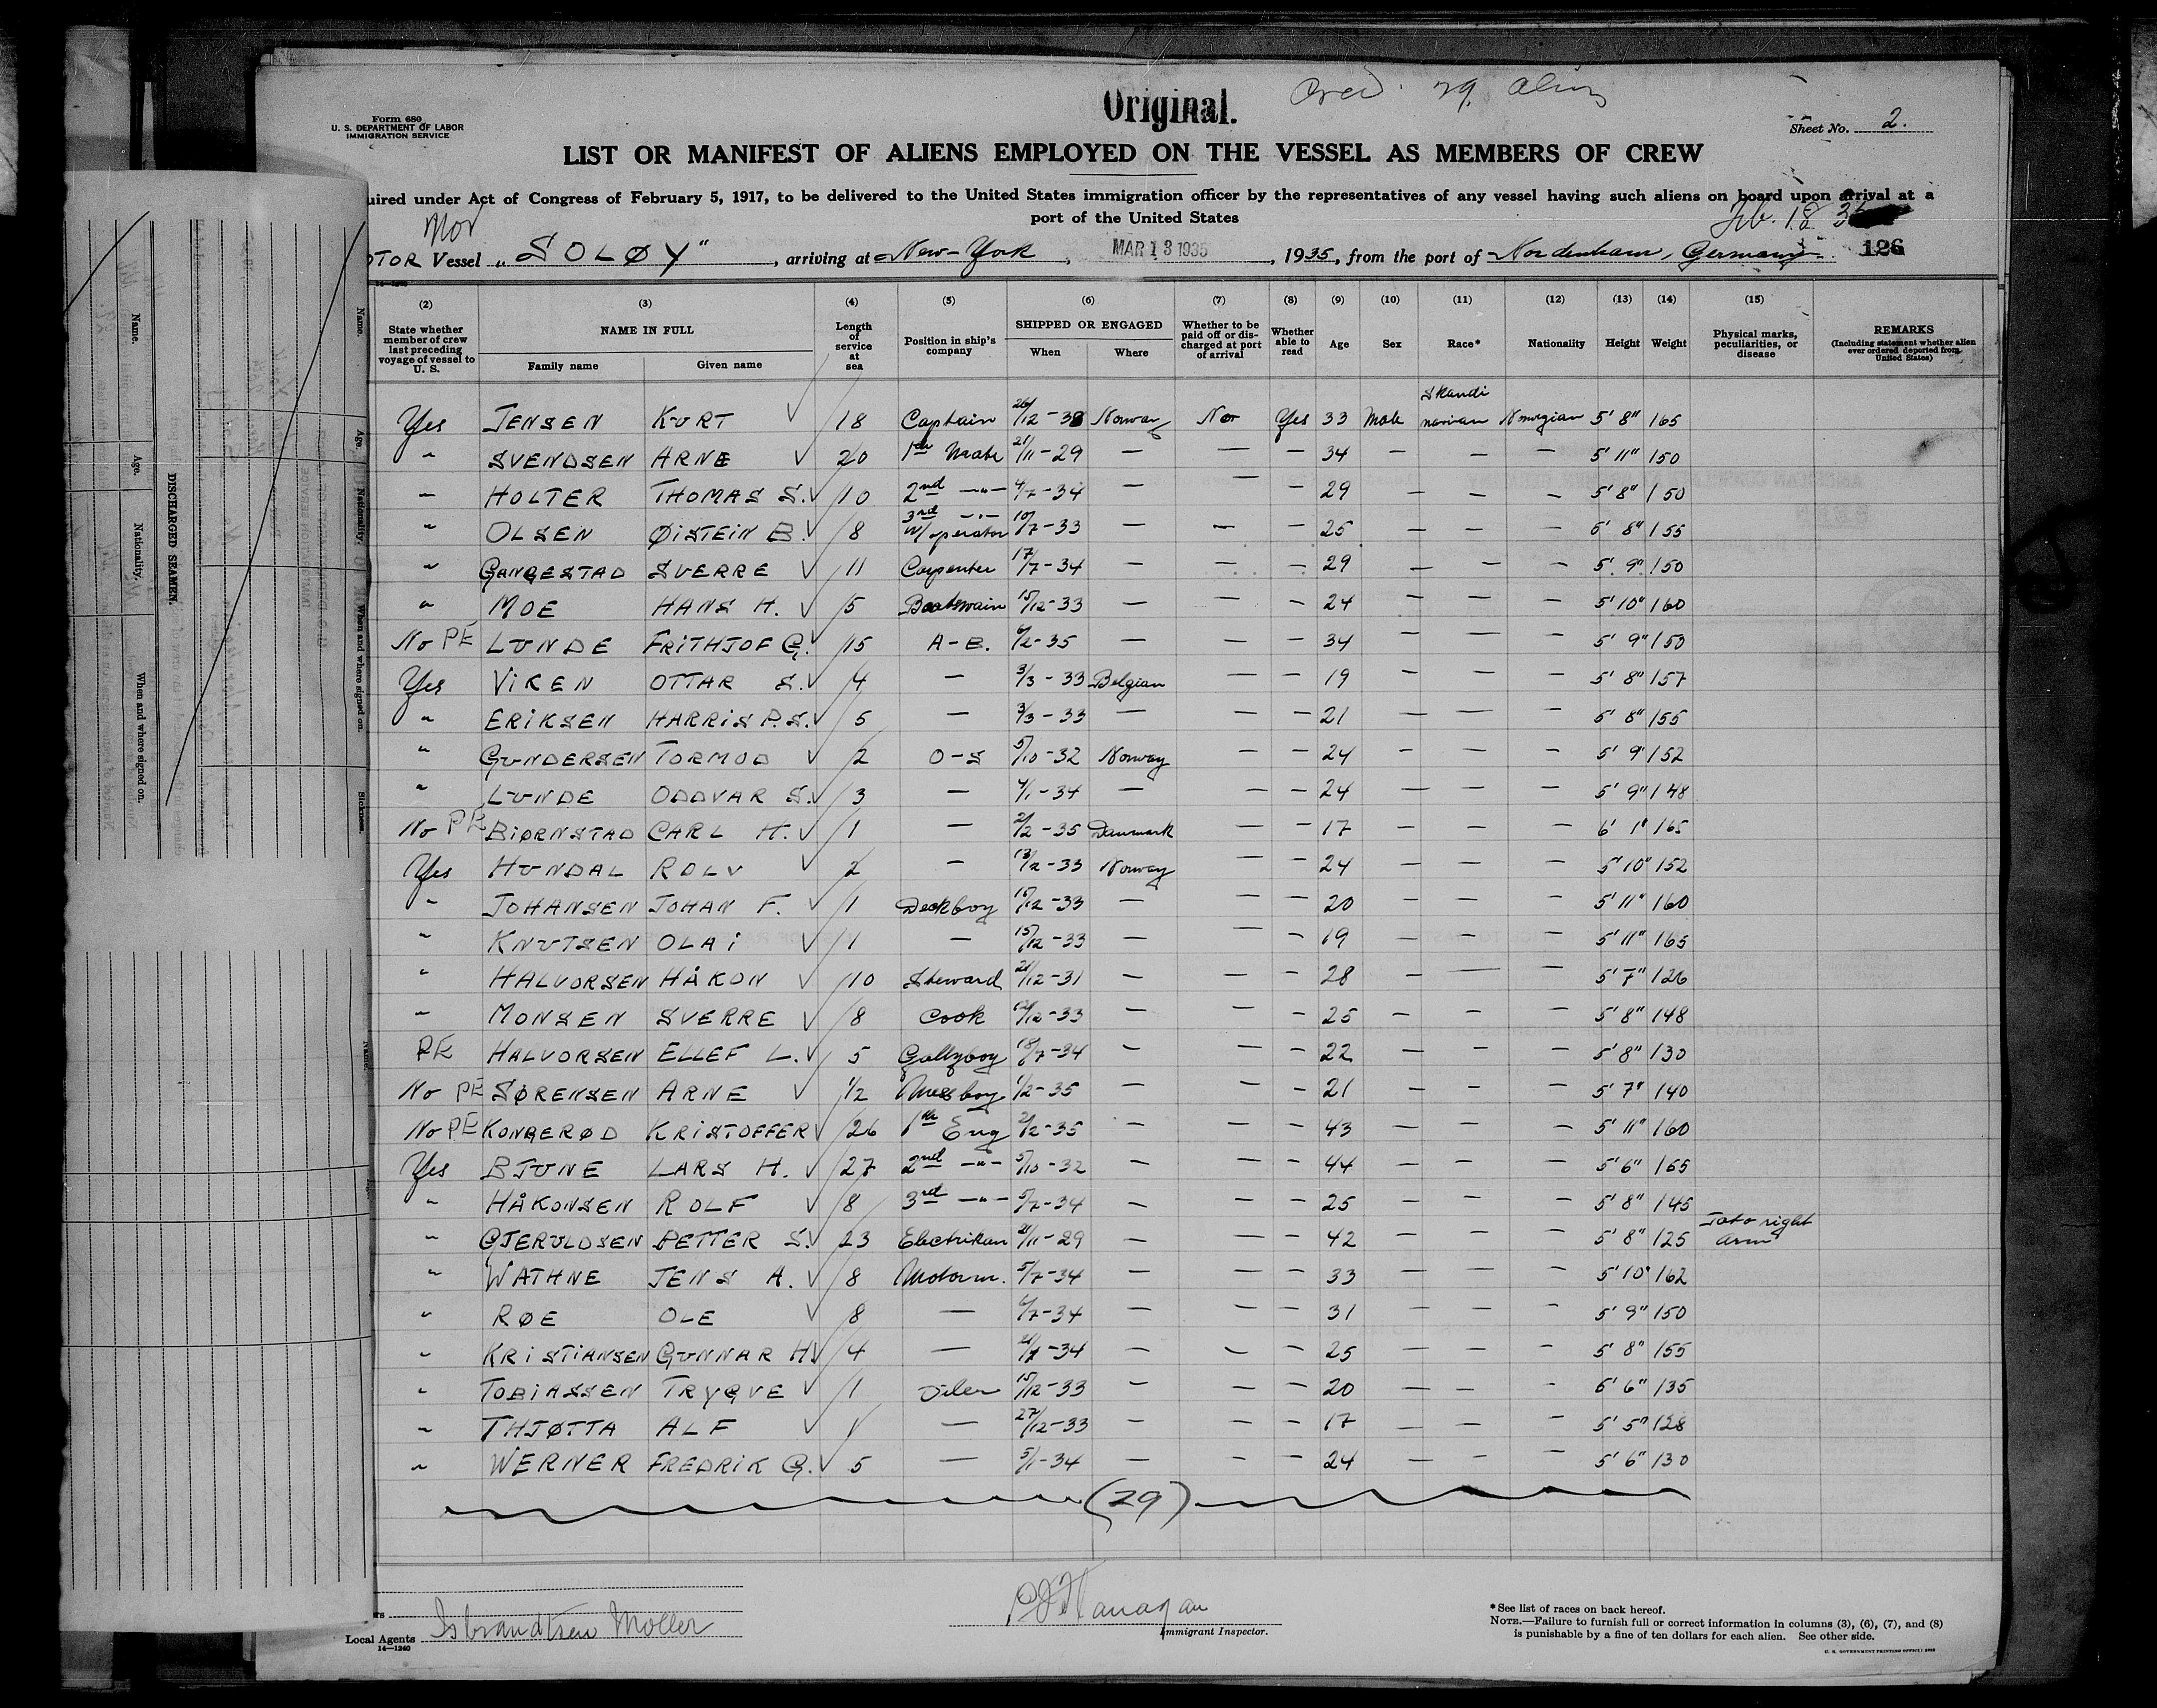 Original.
Form 680
U. S. DEPARTMENT OF LABOR
IMMIGRATION SERVICE
Sheet No. 2.
LIST OR MANIFEST OF ALIENS EMPLOYED ON THE VESSEL AS MEMBERS OF CREW
uired under Act of Congress of February 5, 1917, to be delivered to the United States immigration officer by the representatives of any vessel having such aliens on board upon arrival at a
port of the United States
Nor Feb. 18
OTOR Vessel „SOLØY", arriving at New-York, MAR 13 1935, 1935, from the port of Nordenham, Germany. 126
(2) (3) (4) (5) (6) (7) (8) (9) (10) (11) (12) (13) (14) (15)
State whether member of crew last preceding voyage of vessel to U. S. NAME IN FULL Family name Given name Length of service at sea Position in ship's company SHIPPED OR ENGAGED When Where Whether to be paid off or discharged at port of arrival Whether able to read Age Sex Race* Nationality Height Weight Physical marks, peculiarities, or disease REMARKS (Including statement whether alien ever ordered deported from United States)
Yes JENSEN KURT 18 Captain Norway No Yes 33 Male Skandinavian Norwegian 5' 8" 165
" SVENDSEN ARNE 20 1th Mate 21/11-29 — — — 34 — — — 5' 11" 150
" HOLTER THOMAS S. 10 2nd —"— 4/7-34 — — — 29 — — — 5' 8" 150
" OLSEN ØISTEIN B. 8 3rd —"— W/operator 10/7-33 — — — 25 — — — 5' 8" 155
" GANGESTAD SVERRE 11 Carpenter 17/7-34 — — — 29 — — — 5' 9" 150
" MOE HANS H. 5 Boatswain 15/12-33 — — — 24 — — — 5' 10" 160
No PE LUNDE FRITHJOF G. 15 A-B. 6/2-35 — — — 34 — — — 5' 9" 150
Yes VIKEN OTTAR S. 4 — 3/3-33 Belgian — — 19 — — — 5' 8" 157
" ERIKSEN HARRIS P.S. 5 — 3/3-33 — — — 21 — — — 5' 8" 155
" GUNDERSEN TORMOD 2 O-S 5/10-32 Norway — — 24 — — — 5' 9" 152
" LUNDE ODDVAR S. 3 — 4/1-34 — — — 24 — — — 5' 9" 148
No PE BIØRNSTAD CARL H. 1 — 2/2-35 Danmark — — 17 — — — 6' 1" 165
Yes HUNDAL ROLV 2 — 13/12-33 Norway — — 24 — — — 5' 10" 152
" JOHANSEN JOHAN F. 1 Deckboy 15/12-33 — — — 20 — — — 5' 11" 160
" KNUTSEN OLAI 1 — 15/12-33 — — — 19 — — — 5' 11" 165
" HALVORSEN HÅKON 10 Steward 21/12-31 — — — 28 — — — 5' 7" 126
" MONSEN SVERRE 8 Cook — — — 25 — — — 5' 8" 148
PE HALVORSEN ELLEF L. 5 Gallyboy 18/7-34 — — — 22 — — — 5' 8" 130
No PE SØRENSEN ARNE 1/2 Messboy 1/2-35 — — — 21 — — — 5' 7" 140
No PE KONGERØD KRISTOFFER 26 1th Eng 2/2-35 — — — 43 — — — 5' 11" 160
Yes BJUNE LARS H. 27 2nd —"— 5/10-32 — — — 44 — — — 5' 6" 165
" HÅKONSEN ROLF 8 3rd —"— 5/7-34 — — — 25 — — — 5' 8" 145
" GJERULDSEN PETTER S. 23 Electrikan 21/11-29 — — — 42 — — — 5' 8" 125 Tato right arm
" WATHNE JENS A. 8 Motorm. 5/7-34 — — — 33 — — — 5' 10" 162
" RØE OLE 8 — 6/7-34 — — — 31 — — — 5' 9" 150
" KRISTIANSEN GUNNAR H. 4 — — — — 25 — — — 5' 8" 155
" TOBIASSEN TRYGVE 1 Oiler 15/12-33 — — — 20 — — — 5' 6" 135
" THJØTTA ALF 1 — 27/12-33 — — — 17 — — — 5' 5" 128
" WERNER FREDRIK G. 5 — 5/1-34 — — — 24 — — — 5' 6" 130
(29)
Local Agents Isbrandtsen Moller
14—1240
Immigrant Inspector.
*See list of races on back hereof.
NOTE.—Failure to furnish full or correct information in columns (3), (6), (7), and (8)
is punishable by a fine of ten dollars for each alien. See other side.
U. S. GOVERNMENT PRINTING OFFICE
DISCHARGED SEAMEN.
Name. Age. Nationality. When and where signed on.
Name. Age. Nationality. When and where signed on. Sickness.
Name.